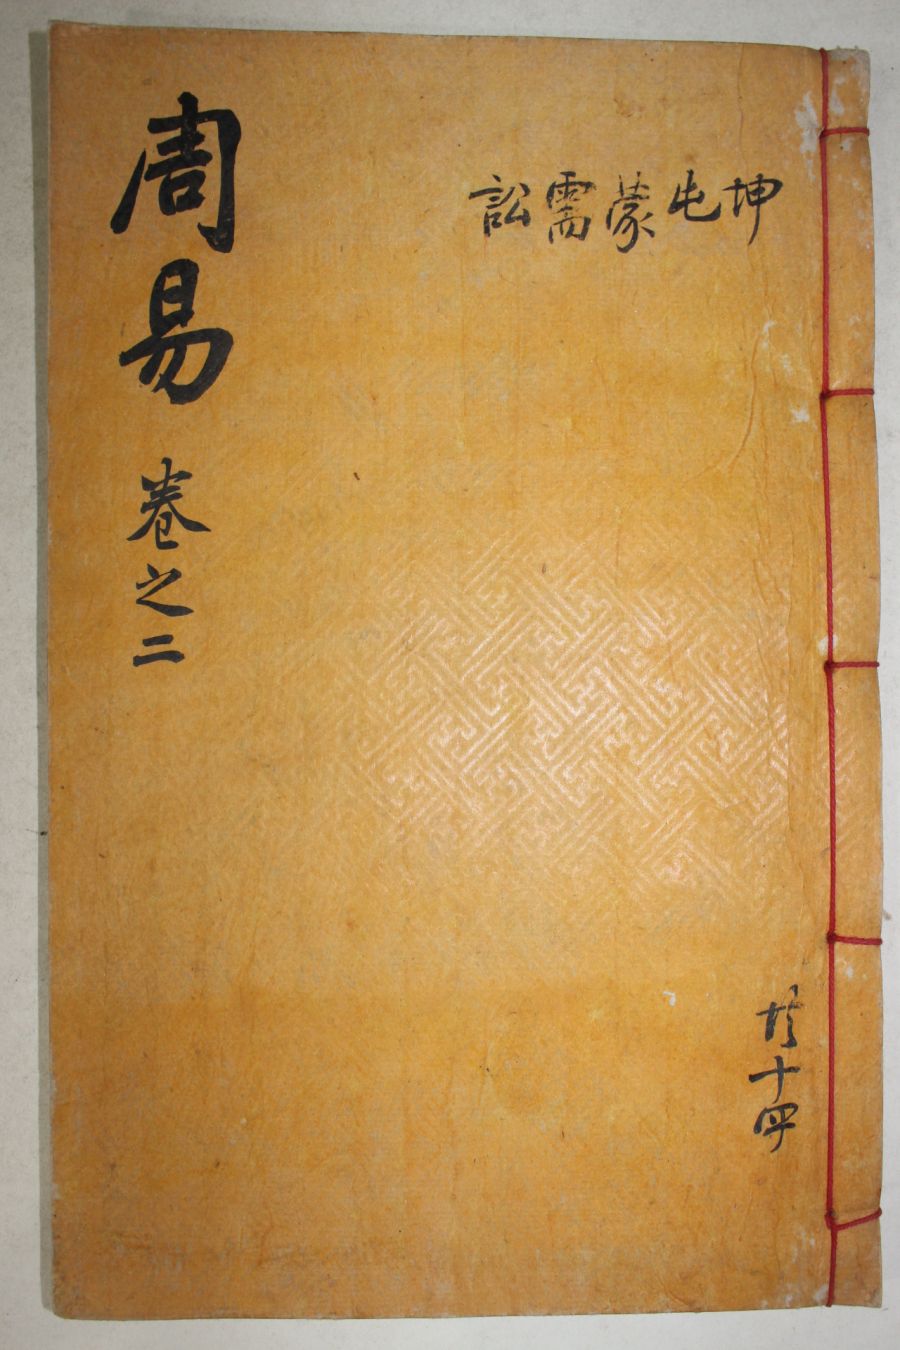 坤屯蒙需訟
共十四
周易 卷之二